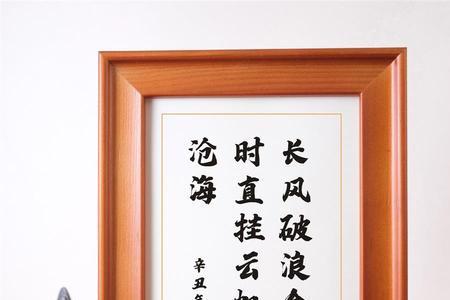 长风破浪
时直挂云
沧海
辛丑